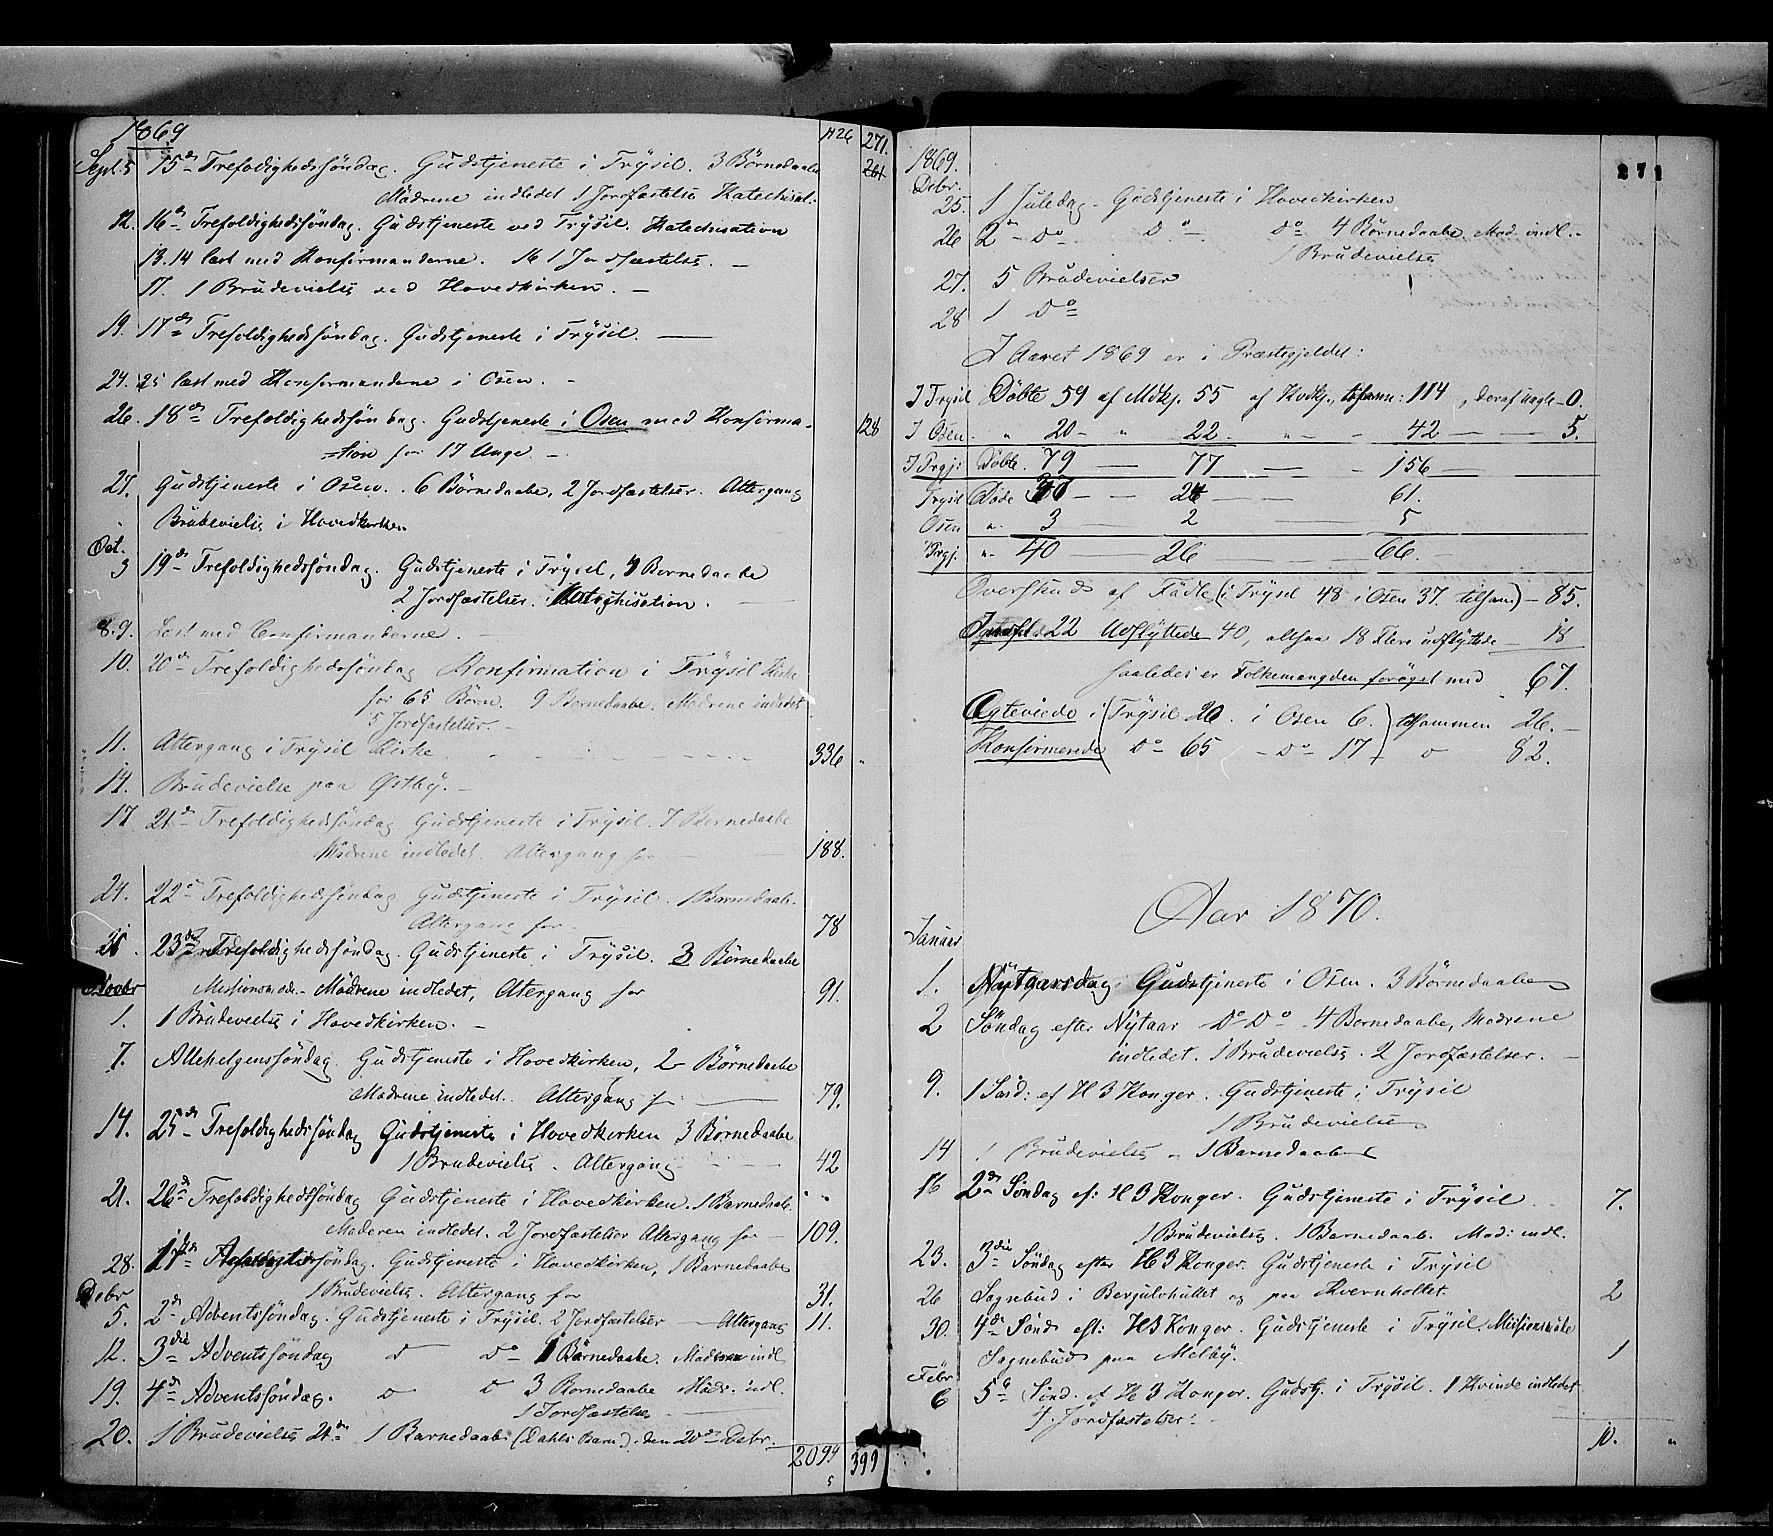 1869
1126 271.
261
Sept. 5 15de Trefoldighedssøndag. Gudstjeneste i Trysil. 3 Børnedaabe
Mødrene indledet 1 Jordfæstelse Katechisat.
12. 16de Trefoldighedssøndag. Gudstjeneste ved Trysil. Katechisation
13. 14 læst med Konfirmanderne. 16 1 Jordfæstelse. —
17. 1 Brudevielse ved Hovedkirken. —
19. 17de Trefoldighedssøndag. Gudstjeneste i Trysil. —
24. 25 læst med Konfirmanderne i Osen. -
26. 18de Trefoldighedssøndag. Gudstjeneste i Osen med Konfirma- 128
-tion for 17 Unge. -
27. Gudstjeneste i Osen. 6 Børnedaabe, 2 Jordfæstelser. Altergang
Brudevielse i Hovedkirken
Oct.
3 19de Trefoldighedssøndag. Gudstjeneste i Trysil, 4 Børnedaabe
2 Jordfæstelser. Katechisation. —
8. 9. Læst med Confirmanderne. -
10. 20de Trefoldighedssøndag Konfirmation i Trysil Kirke
for 65 Børn. 9 Børnedaabe. Mødrene indledet
5 Jordfæstelser. -
11. Altergang i Trysil Kirke 336 "
14. Brudevielse paa Østby. -
17 21de Trefoldighedssøndag Gudstjeneste i Trysil. 7 Børnedaabe
Mødrene indledet. Altergang for — 188.
24. 22de Trefoldighedssøndag Gudstjeneste i Trysil. 1 Barnedaab.
Altergang for - 78
31. 23de Trefoldighedssøndag. Gudstjeneste i Trysil. 3 Børnedaabe
Novbr Missionsmøde. - Mødrene indledet, Altergang for 91.
1. 1 Brudevielse i Hovedkirken. -
7. Allehelgenssøndag. Gudstjeneste i Hovedkirken, 2 Børnedaabe
Mødrene indledet. Altergang for — 79.
14. 25de Trefoldighedssøndag Gudstjeneste i Hovedkirken 3 Børnedaabe
1 Brudevielse. Altergang - - - 42
21. 26de Trefoldighedssøndag Gudstjeneste i Hovedkirken. 1 Barnedaab.
Moderen indledet. 2 Jordfæstelser Altergang for — 109.
28. 1ste Adventssøndag. Gudstjeneste i Hovedkirken, 1 Barnedaab
Debr 1 Brudevielse. Altergang for 31.
5. 2de Adventssøndag. Gudstjeneste i Trysil. 2 Jordfæstelser — Altergang 11.
12. 3die Adventssøndag do Do 1 Børnedaabe. Moderen indl
19. 4de Adventssøndag. do do 3 Børnedaabe Mødr. indl.
1 Jordfæstelse —
20. 1 Brudevielse 21de 1 Barnedaab (Dahls Barn). den 20de Debr.
2094 399
5
271
1869.
Debr.
25. 1 Juledag. Gudstjeneste i Hovedkirken
26 2den - Do Do Do 4 Børnedaabe. Mød. indl. -
1 Brudevielse
27. 5 Brudevielser
28 1 Do
I Aaret 1869 er i Præstegjeldet:
I Trysil Døbte 59 af Mdkj. 55 af Kvdkj., tilsamm: 114, deraf uægte - 0.
I Osen. " 20 - " 22. " - - 42 — — 5.
I Prgj: Døbte. 79 — 77 — - 156 —
Trysil Døde 37 — — 24 — 61.
Osen " 3 — 2 — 5
Prgj. " 40 — 26 — 66. —
Overskud af Fødte (i Trysil 48 i Osen 37. tilsam) - 85.
22 Udflyttede 40, altsaa 18 Flere udflyttede — 18
saaledes er Folkemængden forøget med 67.
Ægteviede i (Trysil 20. i Osen 6.) tilsammen 26. —
Konfirmerede (Do 65 - Do 17) do 82.
Aar 1870.
Januar
1. Nytaarsdag. Gudstjeneste i Osen. 3 Børnedaabe
2 Søndag efter Nytaar Do Do 4 Børnedaabe, Mødrene
indledet. 1 Brudevielse. 2 Jordfæstelser. —
9. 1 Sønd: ef H 3 Konger. Gudstjeneste i Trysil
1 Brudevielse
14 1 Brudevielse - 1 Barnedaab
16 2den Søndag ef: H 3 Konger. Gudstjeneste i Trysil 7.
1 Brudevielse. 1 Barnedaab. Mod: indl.
23. 3die Søndag efter H 3 Konger. Gudstjeneste i Trysil
26 Sognebud i Berjulohullet og paa Kvernholtet. 2
30. 4de Sønd eft: H3 Konger. Gudstjeneste i Trysil. Missionsmøde
Sognebud paa Melby. 1
Febr
6 5te Sønd. ef H 3 Konger. Gudstj. i Trysil. 1 Kvinde indledet
4 Jordfæstelser: -
10. "